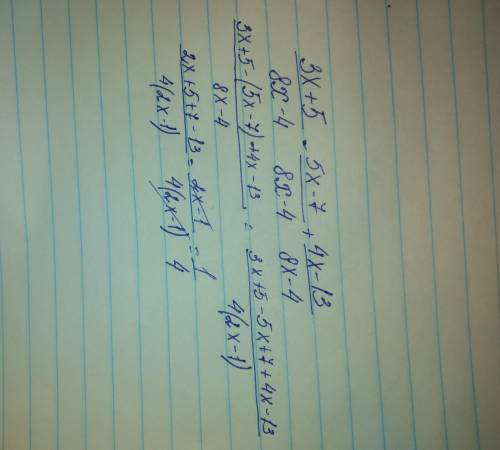 3x+5 - 5x-7 + 4x-13
8x-4 8x-4 8x-4
3x+5-(5x-7)+4x-13 = 3x+5-5x+7+4x-13
8x-4 4(2x-1)
2x+5+7-13 = 2x-1 = 1
4(2x-1) 4(2x-1) 4